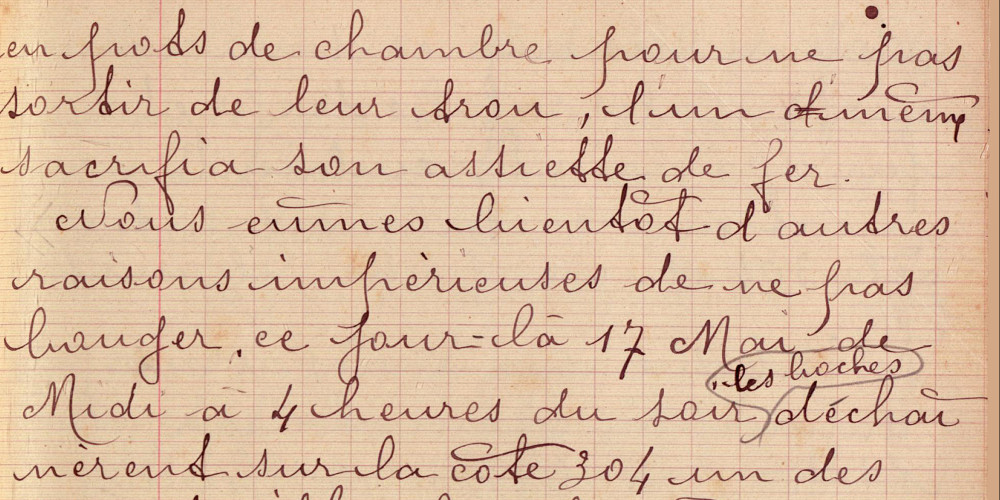 en pots de chambre pour ne pas
sortir de leur trou, l'un d'[...] même
sacrifia son assiette de fer.
Nous eûmes bientôt d'autres
raisons impérieuses de ne pas
bouger, ce jour-là 17 Mai de
les boches
Midi à 4 heures du soir déchaî
nèrent sur la côte 304 un des